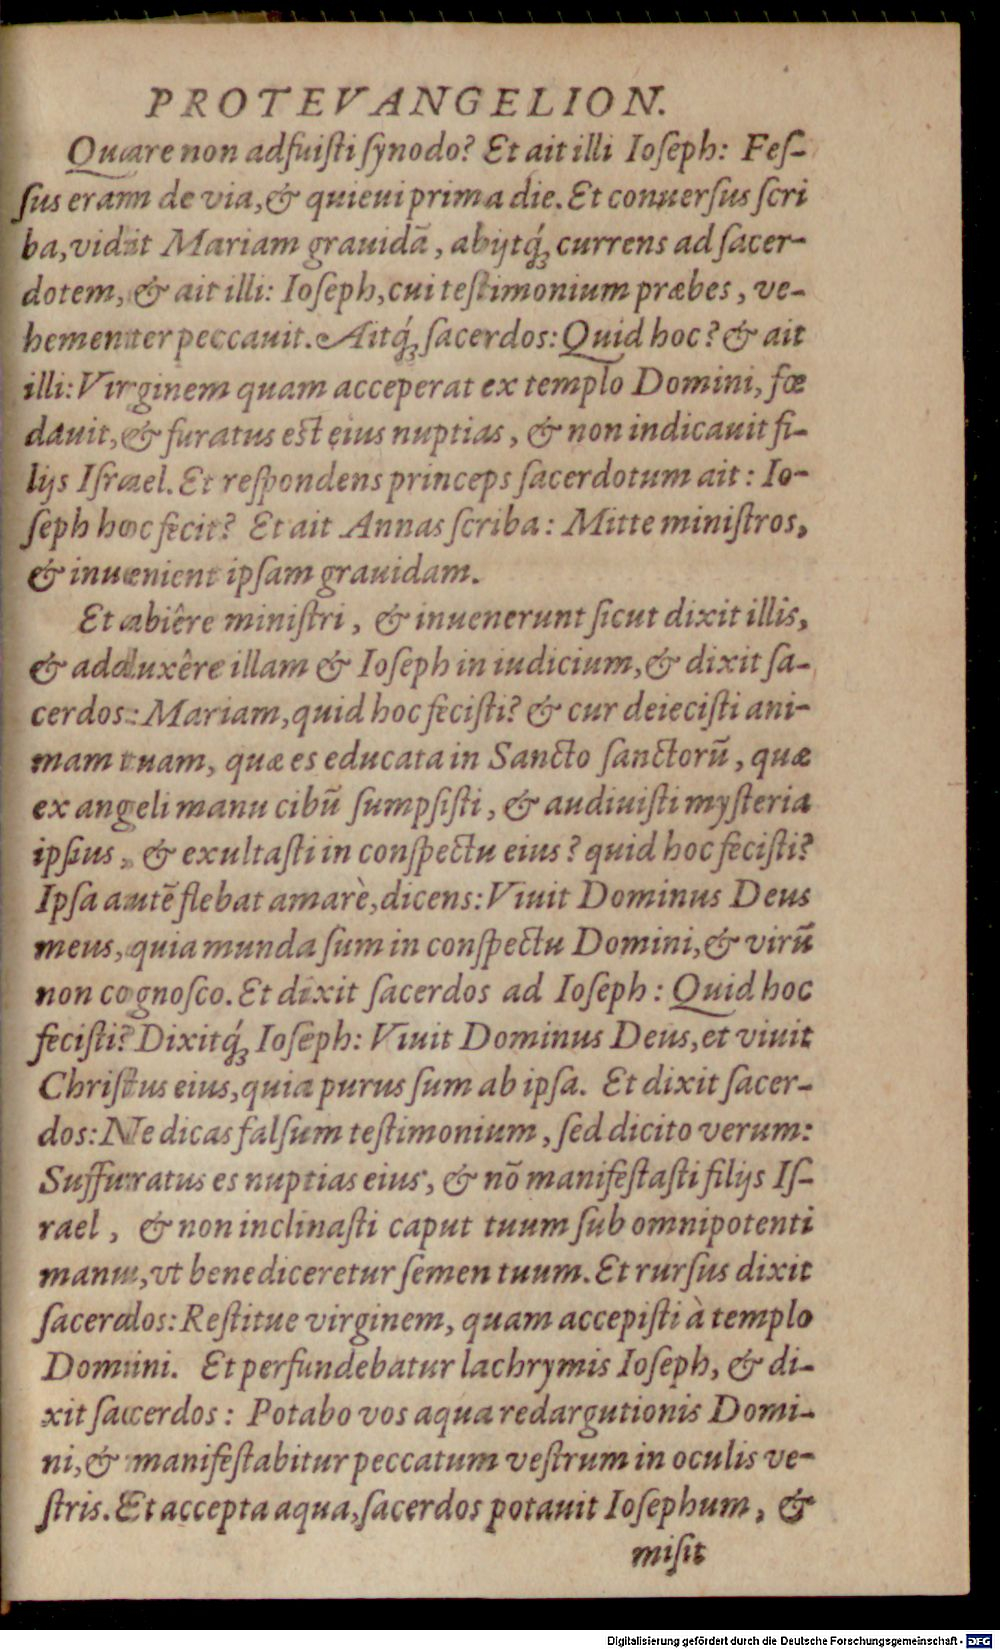 PROTEVANGELION.
Quare non adfuiſti ſynodo? Et ait illi Ioſeph: Feſ-
ſus eram de via, & quieui prima die. Et conuerſus ſcri
ba, vidit Mariam grauidā, abijtq́ꝫ currens ad ſacer-
dotem, & ait illi: Ioſeph, cui teſtimonium præbes, ve-
hementer peccauit. Aitq́ꝫ ſacerdos: Quid hoc? & ait
illi: Virginem quam acceperat ex templo Domini, fœ
dauit, & furatus est eius nuptias, & non indicauit fi-
lijs Iſrael. Et reſpondens princeps ſacerdotum ait: Io-
ſeph hoc fecit? Et ait Annas ſcriba: Mitte miniſtros,
& inuenient ipſam grauidam.
Et abiêre miniſtri, & inuenerunt ſicut dixit illis,
& adduxêre illam & Ioſeph in iudicium, & dixit ſa-
cerdos: Mariam, quid hoc feciſti? & cur deieciſti ani-
mam tuam, quæ es educata in Sancto ſanctorū, quæ
ex angeli manu cibū ſumpſiſti, & audiuiſti myſteria
ipſius, & exultaſti in conſpectu eius? quid hoc feciſti?
Ipſa autē flebat amarè, dicens: Viuit Dominus Deus
meus, quia munda ſum in conſpectu Domini, & virū
non cognoſco. Et dixit ſacerdos ad Ioſeph: Quid hoc
feciſti? Dixitq́ꝫ Ioſeph: Viuit Dominus Deus, et viuit
Chriſtus eius, quia purus ſum ab ipſa. Et dixit ſacer-
dos: Ne dicas falſum teſtimonium, ſed dicito verum:
Suffuratus es nuptias eius, & nō manifeſtaſti filijs Iſ-
rael, & non inclinaſti caput tuum ſub omnipotenti
manu, vt benediceretur ſemen tuum. Et rurſus dixit
ſacerdos: Reſtitue virginem, quam accepiſti à templo
Domini. Et perfundebatur lachrymis Ioſeph, & di-
xit ſacerdos: Potabo vos aqua redargutionis Domi-
ni, & manifeſtabitur peccatum veſtrum in oculis ve-
ſtris. Et accepta aqua, ſacerdos potauit Ioſephum, &
miſit
Digitalisierung gefördert durch die Deutsche Forschungsgemeinschaft - DFG